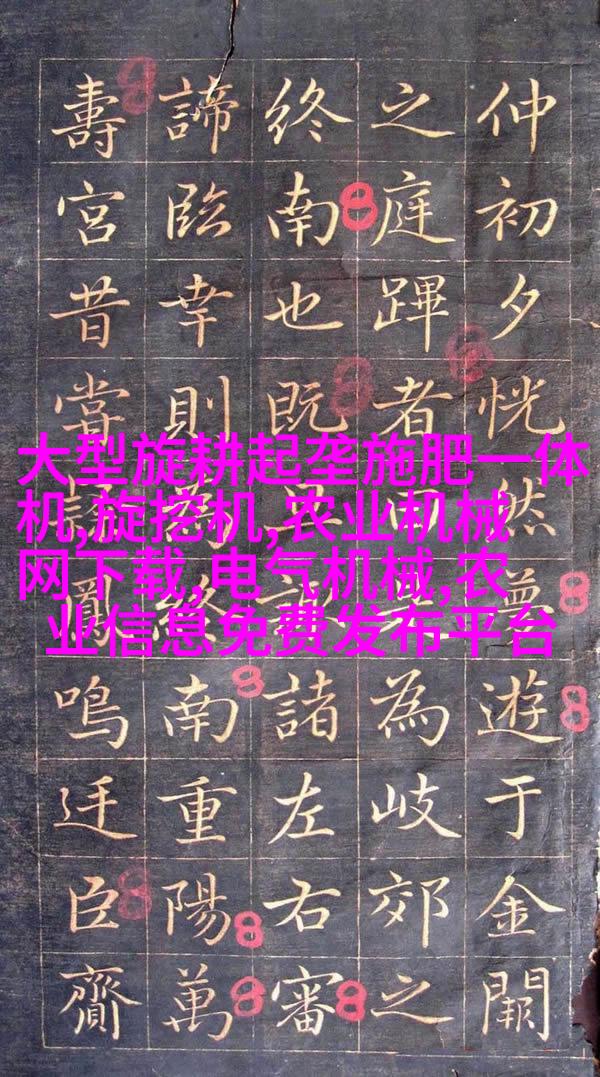 大型旋耕起垄施肥一体
机,旋挖机,农业机械
网下载,电气机械,农
业信息免费发布平台
仲初夕恍然遊于金闕
之庭蹕者為岐郊之
終南也既諸左右審
諦臨幸則為終南重陽萬
壽宮昔鳳鳴迁臣齎